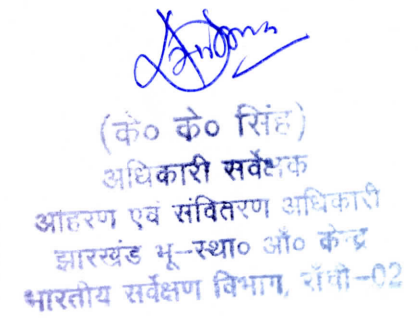 (के० के० सिंह)
अधिकारी सर्वेक्षक
आहरण एवं संवितरण अधिकारी
झारखंड भू-स्था० आँ० केन्द्र
भारतीय सर्वेक्षण विभाग, राँची-02